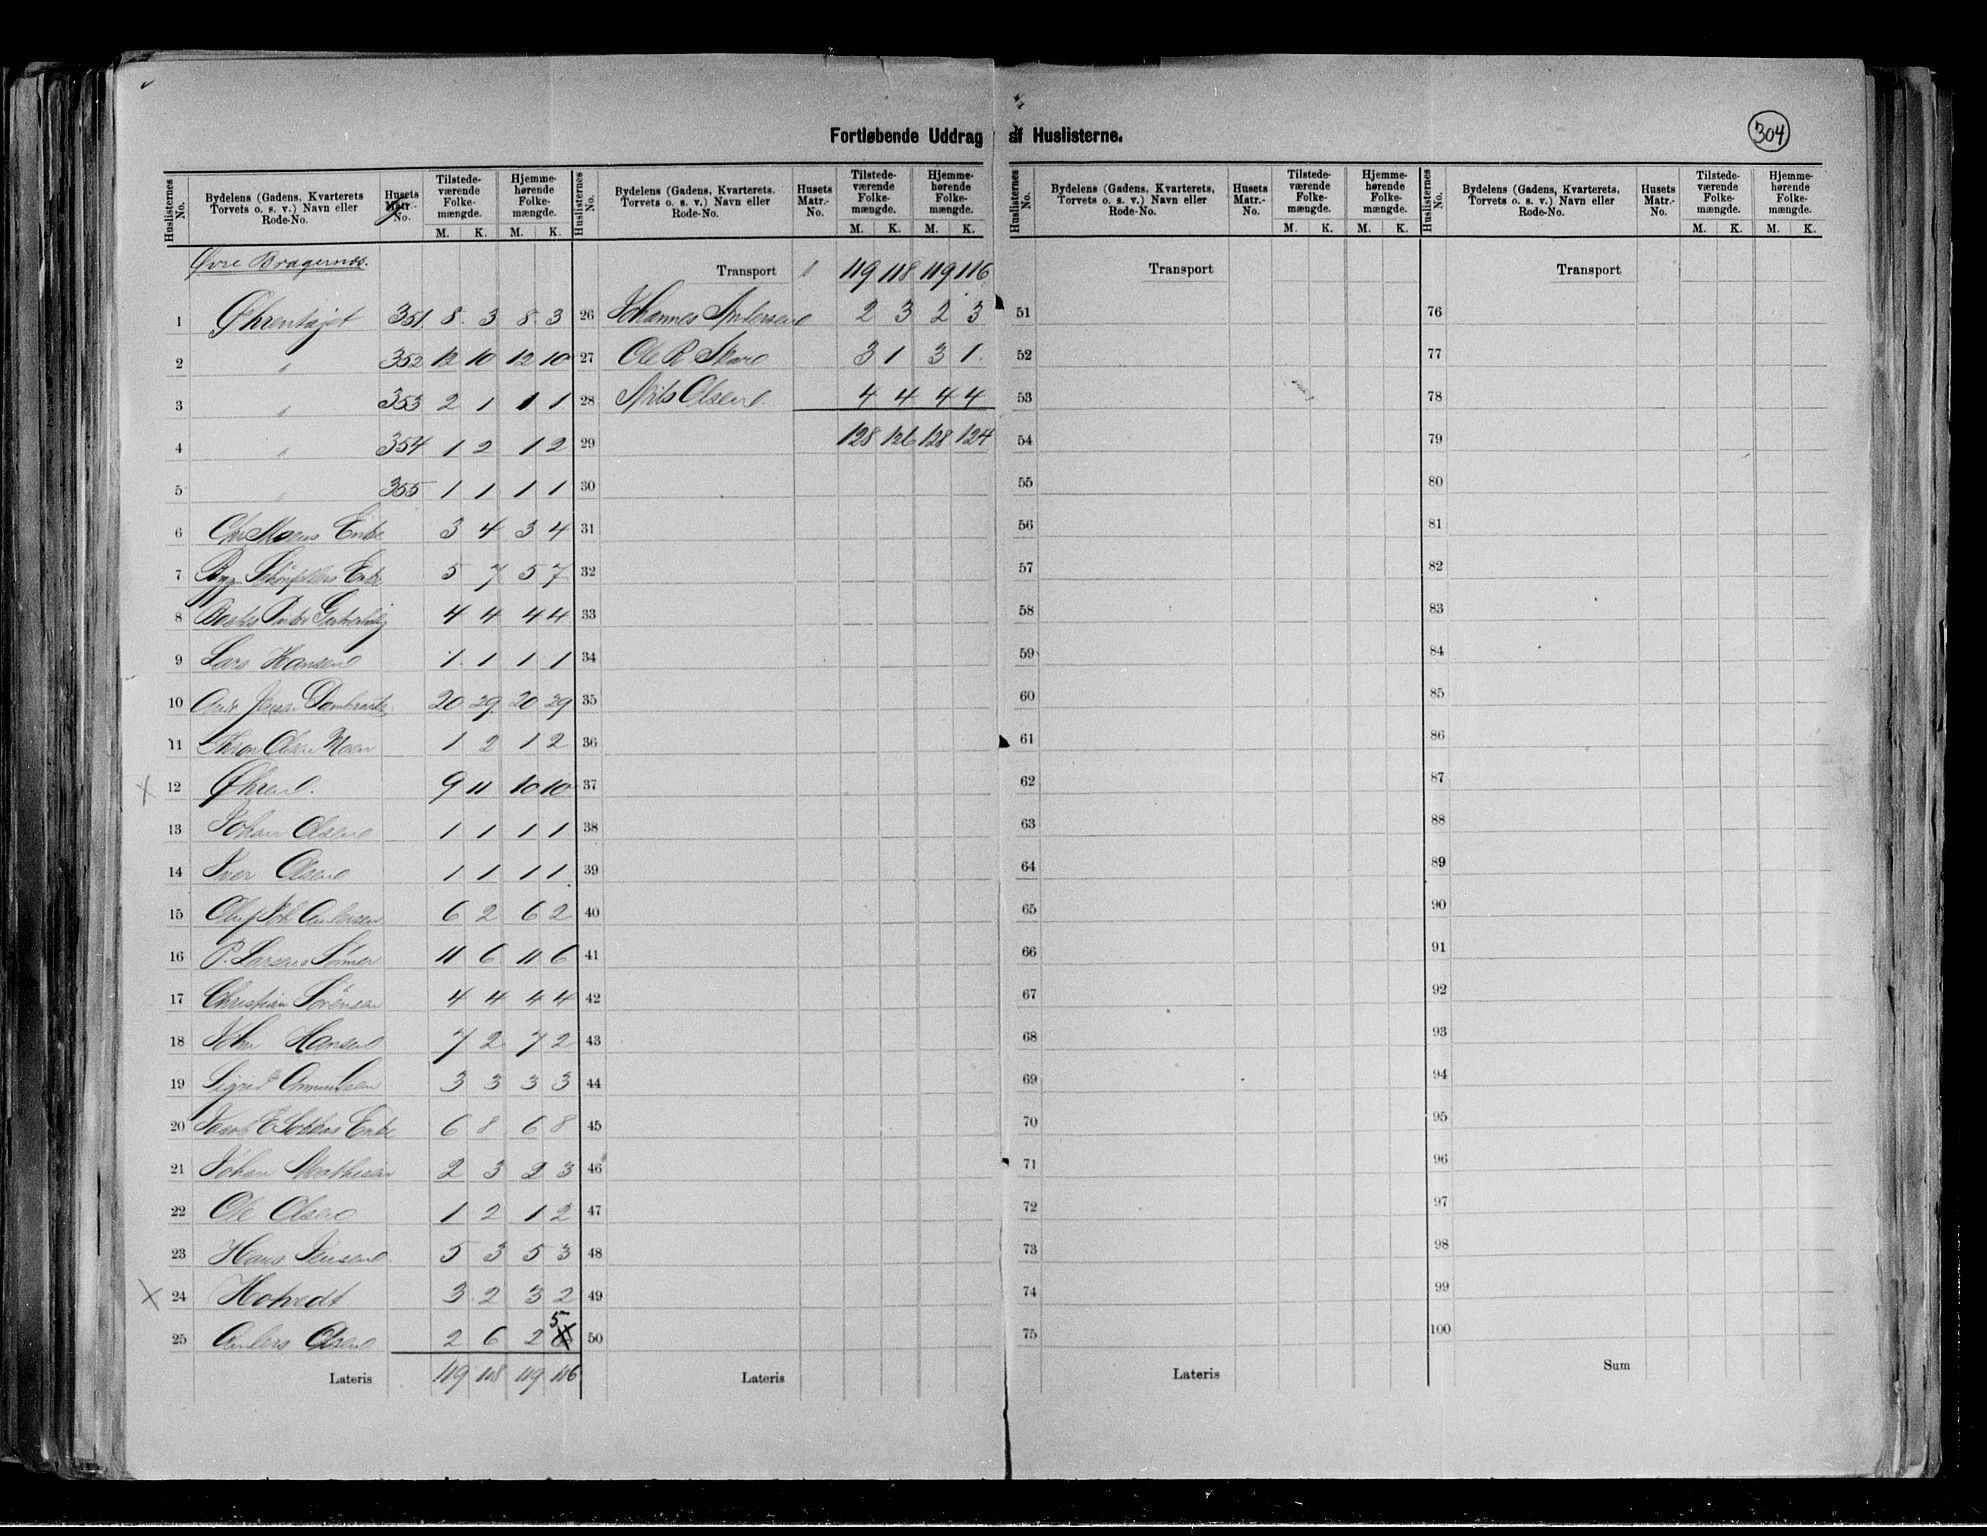 Fortløbende Uddrag af Huslisterne.
304
Huslisternes No. | Bydelens (Gadens, Kvarterets Torvets o. s. v.) Navn eller Rode-No. | Husets Matr.-No. | Tilstedeværende Folkemængde. M. K. | Hjemmehørende Folkemængde. M. K.
Øvre Bragernæs.
1 Øhrentøjet 351 8 3 8 3
2 " 352 12 10 12 10
3 " 353 2 1 1 1
4 " 354 1 2 1 2
5 " 355 1 1 1 1
6 Moens Enke 3 4 3 4
7 Enke 5 7 5 7
8 4 4 4 4
9 Lars Hansen 1 1 1 1
10 Jensen 20 29 20 29
11 Olsen Moen 1 2 1 2
X 12 Øhren. 9 11 10 10
13 Johan Olsen 1 1 1 1
14 Iver Olsen 1 1 1 1
15 Oluf Joh Andersen 6 2 6 2
16 P. Larsen 11 6 11 6
17 Christian Sørensen 4 4 4 4
18 John Hansen 7 2 7 2
19 Sigrid 3 3 3 3
20 Jacob E Enke 6 8 6 8
21 Johan Mathisen 2 3 2 3
22 Ole Olsen 1 2 1 2
23 Hans Jensen 5 3 5 3
X 24 Hotvedt 3 2 3 2
25 Anders Olsen 2 6 2 5
Lateris 119 118 119 116
Huslisternes No. | Bydelens (Gadens, Kvarterets. Torvets o. s. v.) Navn eller Rode-No. | Husets Matr.-No. | Tilstedeværende Folkemængde. M. K. | Hjemmehørende Folkemængde. M. K.
Transport 119 118 119 116
26 Johannes Andersen 2 3 2 3
27 Ole R 3 1 3 1
28 Nils Olsen 4 4 4 4
29 128 126 128 124
30
31
32
33
34
35
36
37
38
39
40
41
42
43
44
45
46
47
48
49
50
Lateris
Huslisternes No. | Bydelens (Gadens, Kvarterets, Torvets o. s. v.) Navn eller Rode-No. | Husets Matr.-No. | Tilstedeværende Folkemængde. M. K. | Hjemmehørende Folkemængde. M. K.
Transport
51
52
53
54
55
56
57
58
59
60
61
62
63
64
65
66
67
68
69
70
71
72
73
74
75
Lateris
Huslisternes No. | Bydelens (Gadens, Kvarterets, Torvets o. s. v.) Navn eller Rode-No. | Husets Matr.-No. | Tilstedeværende Folkemængde. M. K. | Hjemmehørende Folkemængde. M. K.
Transport
76
77
78
79
80
81
82
83
84
85
86
87
88
89
90
91
92
93
94
95
96
97
98
99
100
Sum